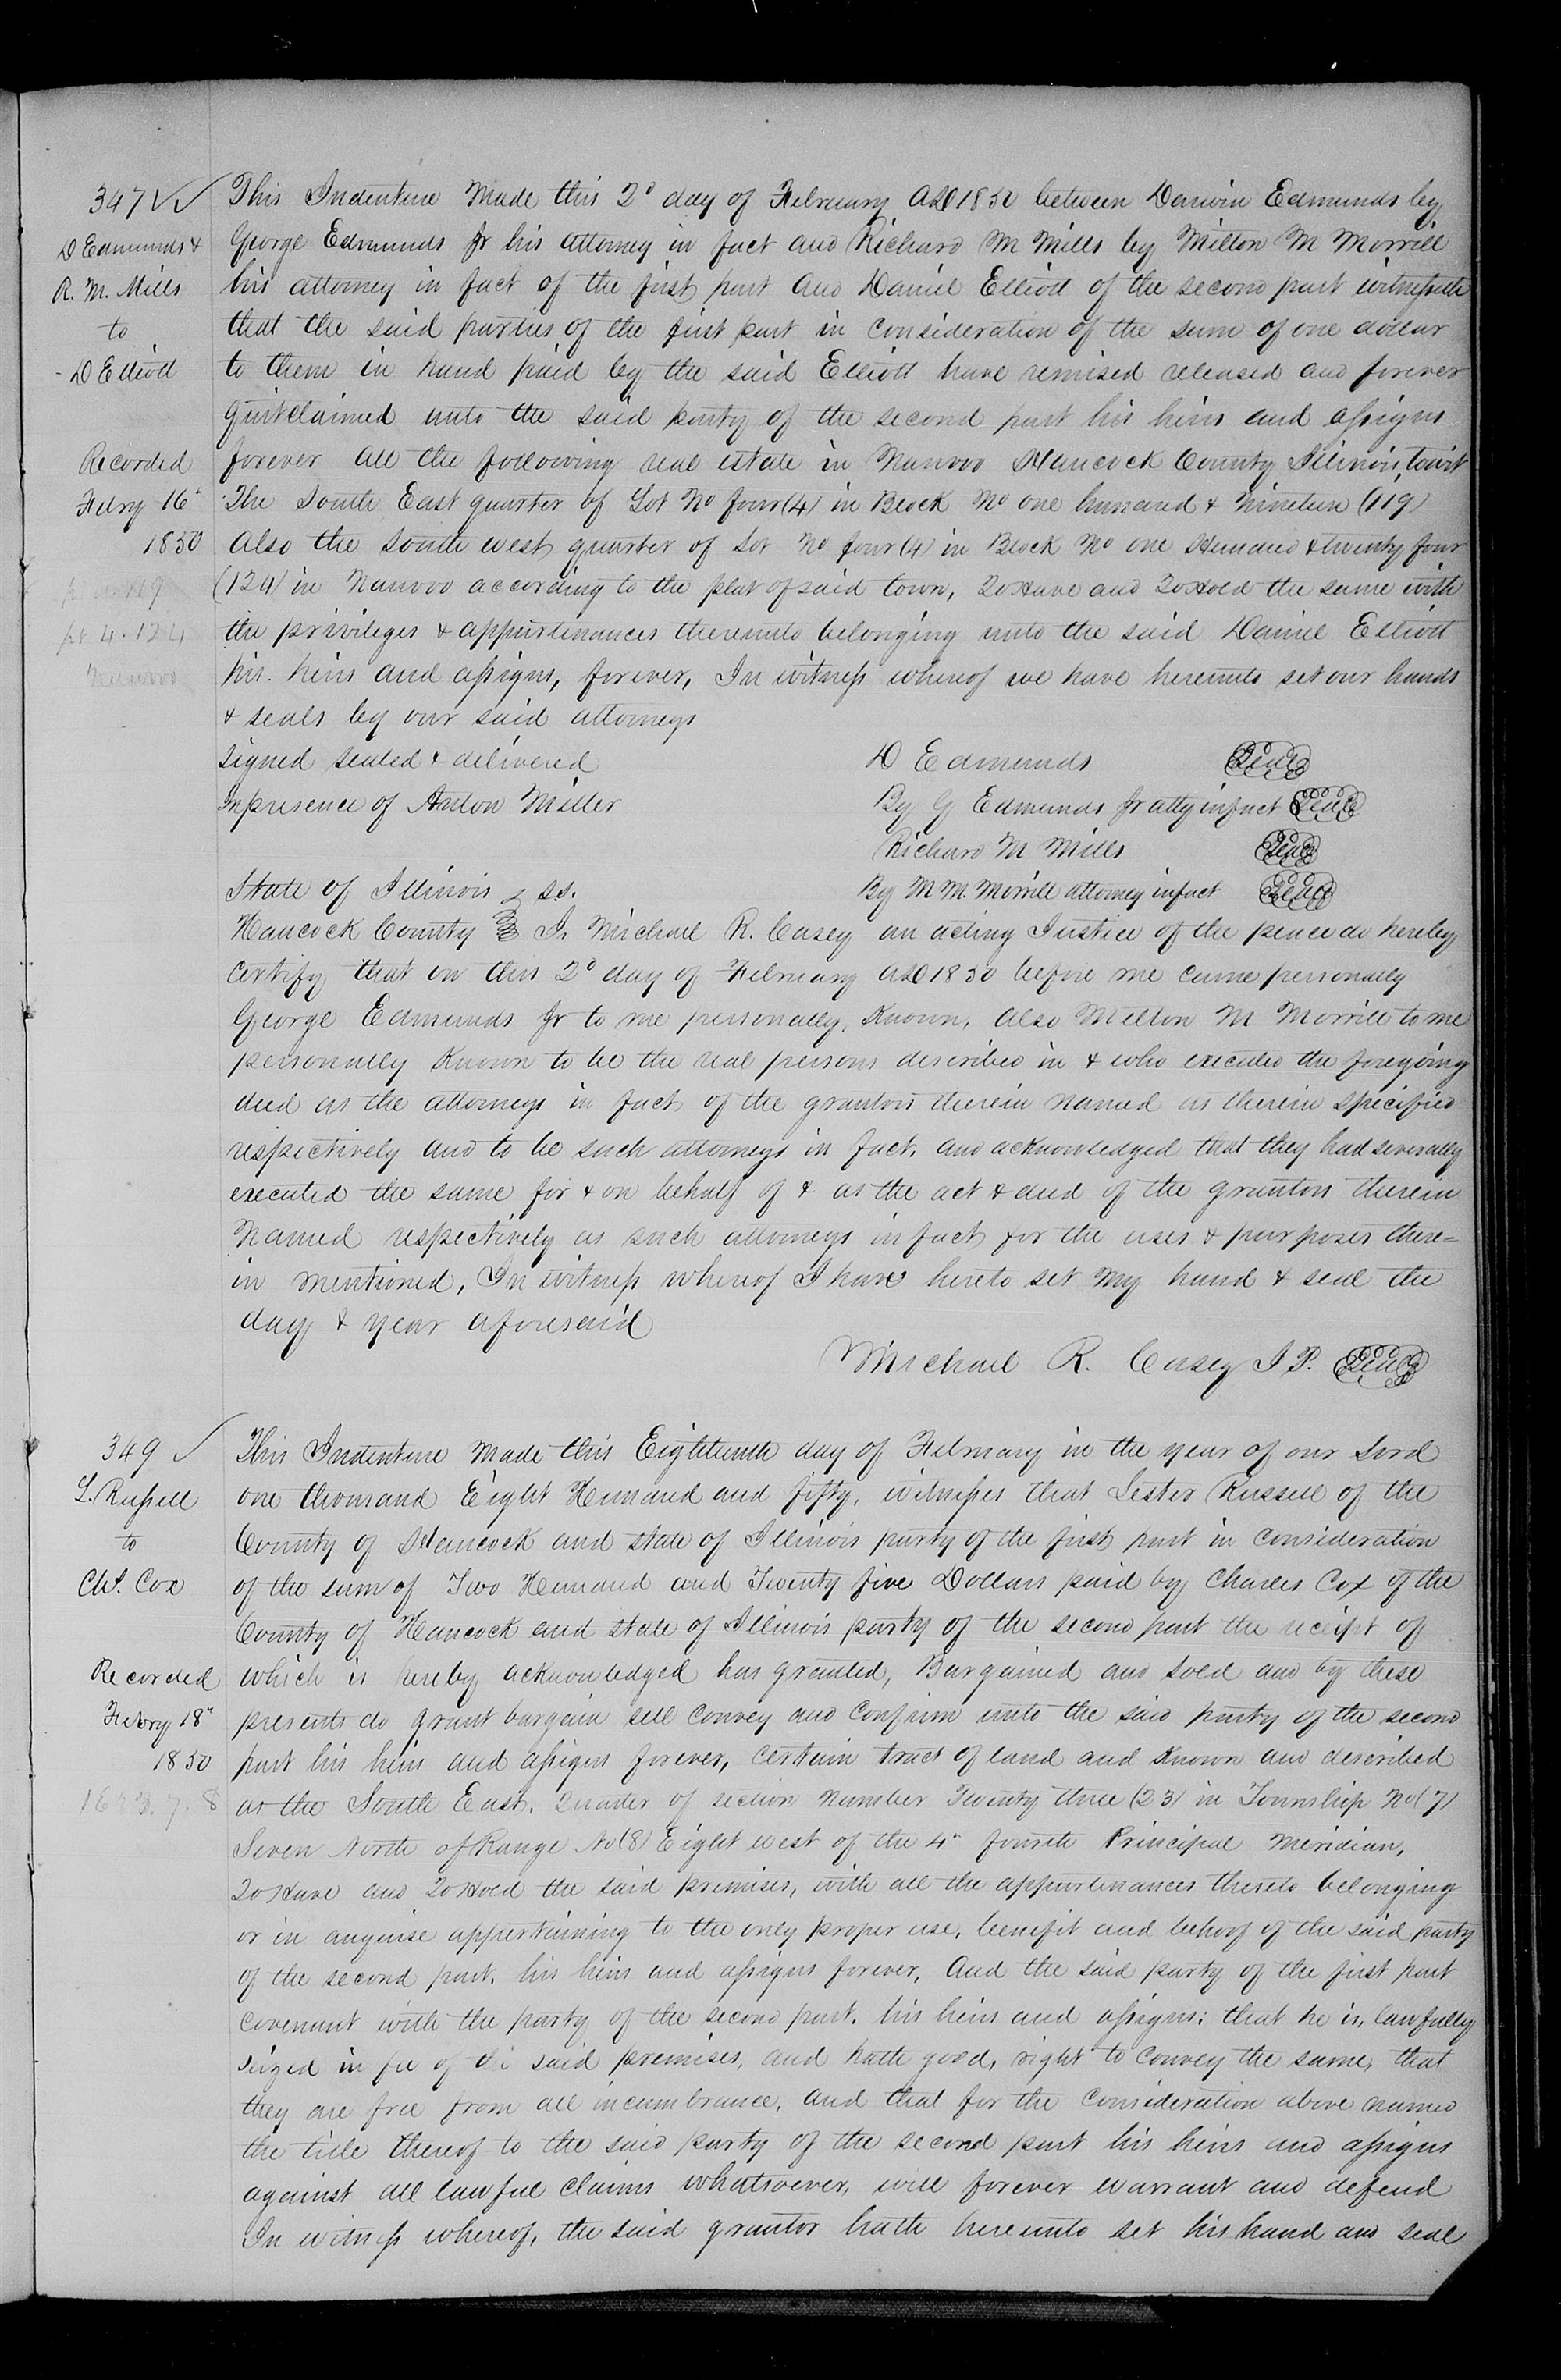 347
D Edmunds &
R. M. Mills
to
D Elliott
Recorded
Febry 16"
1850
pt 4. 124
Nauvoo
This Indenture Made this 2d day of February AD 1850 between Darwin Edmunds by
George Edmunds Jr his attorney in fact and Richard M Mills by Milton M Morrill
his attorney in fact of the first part and Daniel Elliott of the second part witnesseth
that the said parties of the first part in consideration of the sum of one dollar
to them in hand paid by the said Elliott have remised released and forever
quitclaimed unto the said party of the second part his heirs and assigns
forever all the following real estate in Nauvoo Hancock County Illinois, towit
The South East quarter of Lot No four (4) in Block No one hundred & nineteen (119)
Also the South west quarter of Lot No four (4) in Block No one Hundred & twenty four
(124) in Nauvoo according to the plat of said town, To Have and To Hold the same with
the privileges & appurtenances thereunto belonging unto the said Daniel Elliott
his heirs and assigns, forever, In witness whereof we have hereunto set our hands
& seals by our said attorneys
signed sealed & delivered D Edmunds Seal
In presence of Anton Miller By G Edmunds Jr atty in fact Seal
Richard M Mills Seal
State of Illinois ss. By M M. Morrill attorney in fact Seal
Hancock County I, Michael R. Casey an acting Justice of the peace do hereby
certify that on this 2d day of February AD 1850 before me came personally
George Edmunds Jr to me personally, Known, also Milton M Morrill to me
personally Known to be the real persons described in & who executed the foregoing
deed as the attorneys in fact of the grantors therein named as therein specified
respectively and to be such attorneys in fact, and acknowledged that they had severally
executed the same for & on behalf of & as the act & deed of the grantors therein
Named respectively as such attorneys in fact for the uses & purposes there=
in mentioned, In witness whereof I have hereto set my hand & seal the
day & year aforesaid
Michael R. Casey J P. Seal
349
L. Russell
to
Chs. Cox
Recorded
Febry 18"
1850
23. 7. 8
This Indenture Made this Eighteenth day of February in the year of our Lord
one thousand Eight Hundred and fifty, witnesses that Lester Russell of the
County of Hancock and state of Illinois party of the first part in consideration
of the sum of Two Hundred and Twenty five Dollars paid by Charles Cox of the
County of Hancock and state of Illinois party of the second part the receipt of
which is hereby acknowledged has granted, Bargained and sold and by these
presents do grant bargain sell convey and confirm unto the said party of the second
part his heirs and assigns forever, certain tract of land and known and described
as the South East, Quarter of section number Twenty three (23) in Township No (7)
Seven North of Range No (8) Eight west of the 4" fourth Principal Meridian,
To Have and To Hold the said premises, with all the appurtenances thereto belonging
or in anywise appertaining to the only proper use, benefit and behoof of the said party
of the second part, his heirs and assigns forever, And the said party of the first part
covenant with the party of the second part, his heirs and assigns; that he is, lawfully
seized in fee of the said premises, and hath good, right to convey the same, that
they are free from all incumbrance, and that for the consideration above named
the title thereof to the said party of the second part his heirs and assigns
against all lawful claims whatsoever, will forever warrant and defend
In witness whereof, the said grantor hath hereunto set his hand and seal